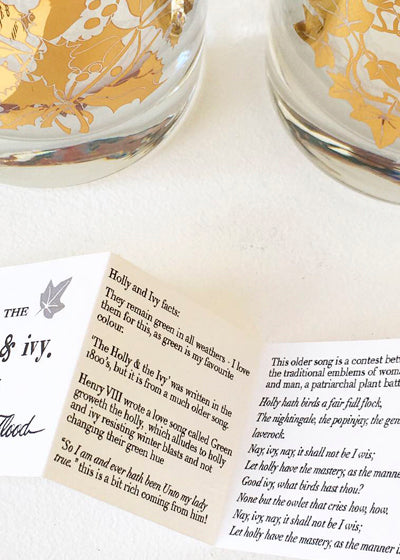 THE
& ivy.
Flood
Holly and Ivy facts:
They remain green in all weathers - I love
them for this, as green is my favourite
colour.
'The Holly & the Ivy' was written in the
1800's, but it is from a much older song.
Henry VIII wrote a love song called Green
groweth the holly, which alludes to holly
and ivy resisting winter blasts and not
changing their green hue
"So I am and ever hath been Unto my lady
true." this is a bit rich coming from him!
This older song is a contest betwe
the traditional emblems of woma
and man, a patriarchal plant batt
Holly hath birds a fair full flock,
The nightingale, the popinjay, the gen
laverock.
Nay, ivy, nay, it shall not be I wis;
Let holly have the mastery, as the manner
Good ivy, what birds hast thou?
None but the owlet that cries how, how.
Nay, ivy, nay, it shall not be I wis;
Let holly have the mastery, as the manner